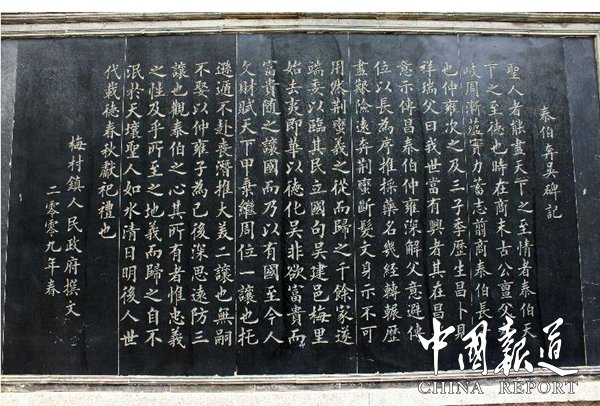 泰伯奔吳碑記
聖人者能盡天下之至情者泰伯天
下之至德也時在商末古公亶父
岐周漸蘊實力志翦商泰伯長
也仲雍次之及三子季歷生昌卜見
祥瑞父曰我世當有興者其在昌
意示傳昌泰伯仲雍深解父意避傳
位以長為序推採藥名幾經轉輾歷
盡艱險遠奔荆蠻斷髮文身示不可
用然荆蠻義之從而歸之千餘家遂
端委以臨其民立國句吳建邑梅里
始去夷即華以德化吳非欲富貴而
富貴隨之讓國而乃以有國至今人
文財賦天下甲乘繼周位一讓也托
遜遁不赴喪潛推大美二讓也無嗣
不娶以仲雍子為己後深思遠防三
讓也觀泰伯之心其所有者惟忠義
之性及乎所至之地義而歸之自不
泯於天壤聖人如水清日明後人世
代載德春秋獻祀禮也
梅村鎮人民政府撰文
二零零九年春
中國報道
CHINA REPORT